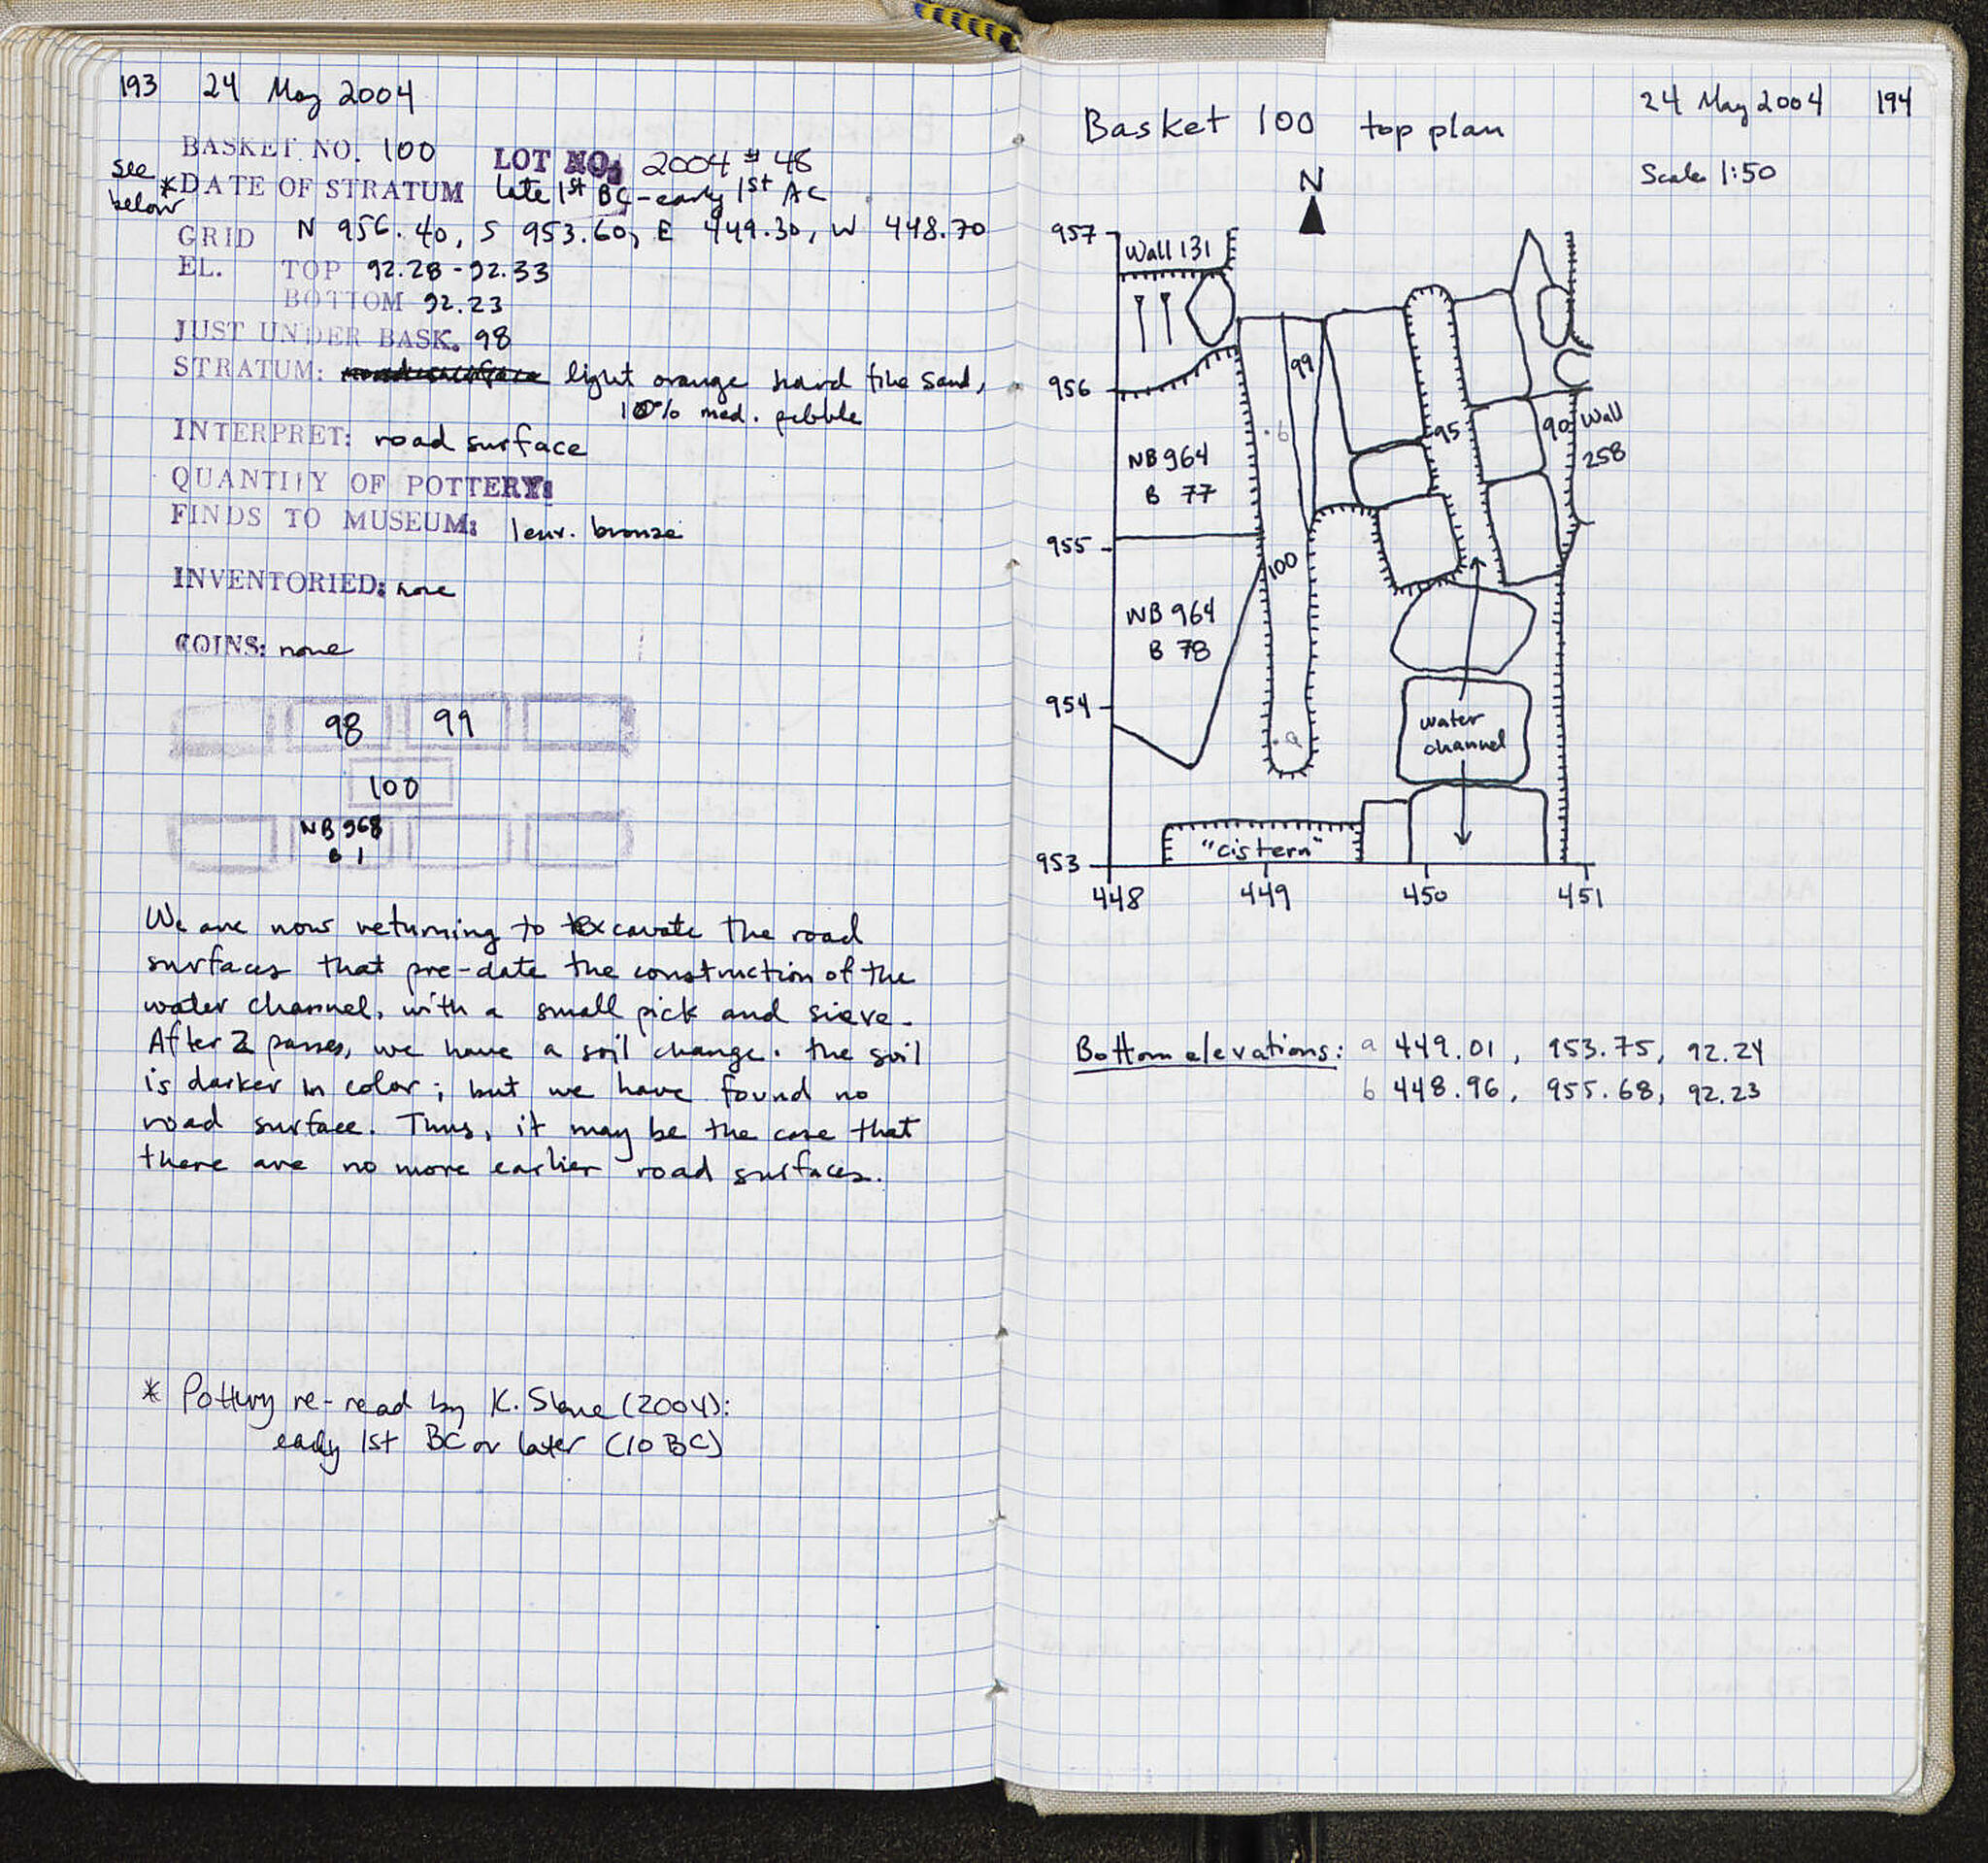 193 24 May 2004
BASKET NO. 100 LOT NO: 2004 # 48
see below *DATE OF STRATUM late 1st BC - early 1st AC
GRID N 956.40, S 953.60, E 449.30, W 448.70
EL. TOP 92.28 - 92.33
BOTTOM 92.23
JUST UNDER BASK. 98
STRATUM: light orange hard fine sand,
10% med. pebble
INTERPRET: road surface
QUANTITY OF POTTERY:
FINDS TO MUSEUM: 1 env. bronze
INVENTORIED: none
COINS: none
98 99
100
NB 968
B 1
We are now returning to excavate the road
surfaces that pre-date the construction of the
water channel, with a small pick and sieve.
After 2 passes, we have a soil change. the soil
is darker in color; but we have found no
road surface. Thus, it may be the case that
there are no more earlier road surfaces.
* Pottery re-read by K. Slane (2004):
early 1st BC or later (10 BC)
24 May 2004 194
Basket 100 top plan
Scale 1:50
N
957
Wall 131
99
956
b
95
90
Wall
258
NB 964
B 77
955
100
NB 964
B 78
954
water
channel
a
"cistern"
953
448 449 450 451
Bottom elevations: a 449.01, 953.75, 92.24
b 448.96, 955.68, 92.23